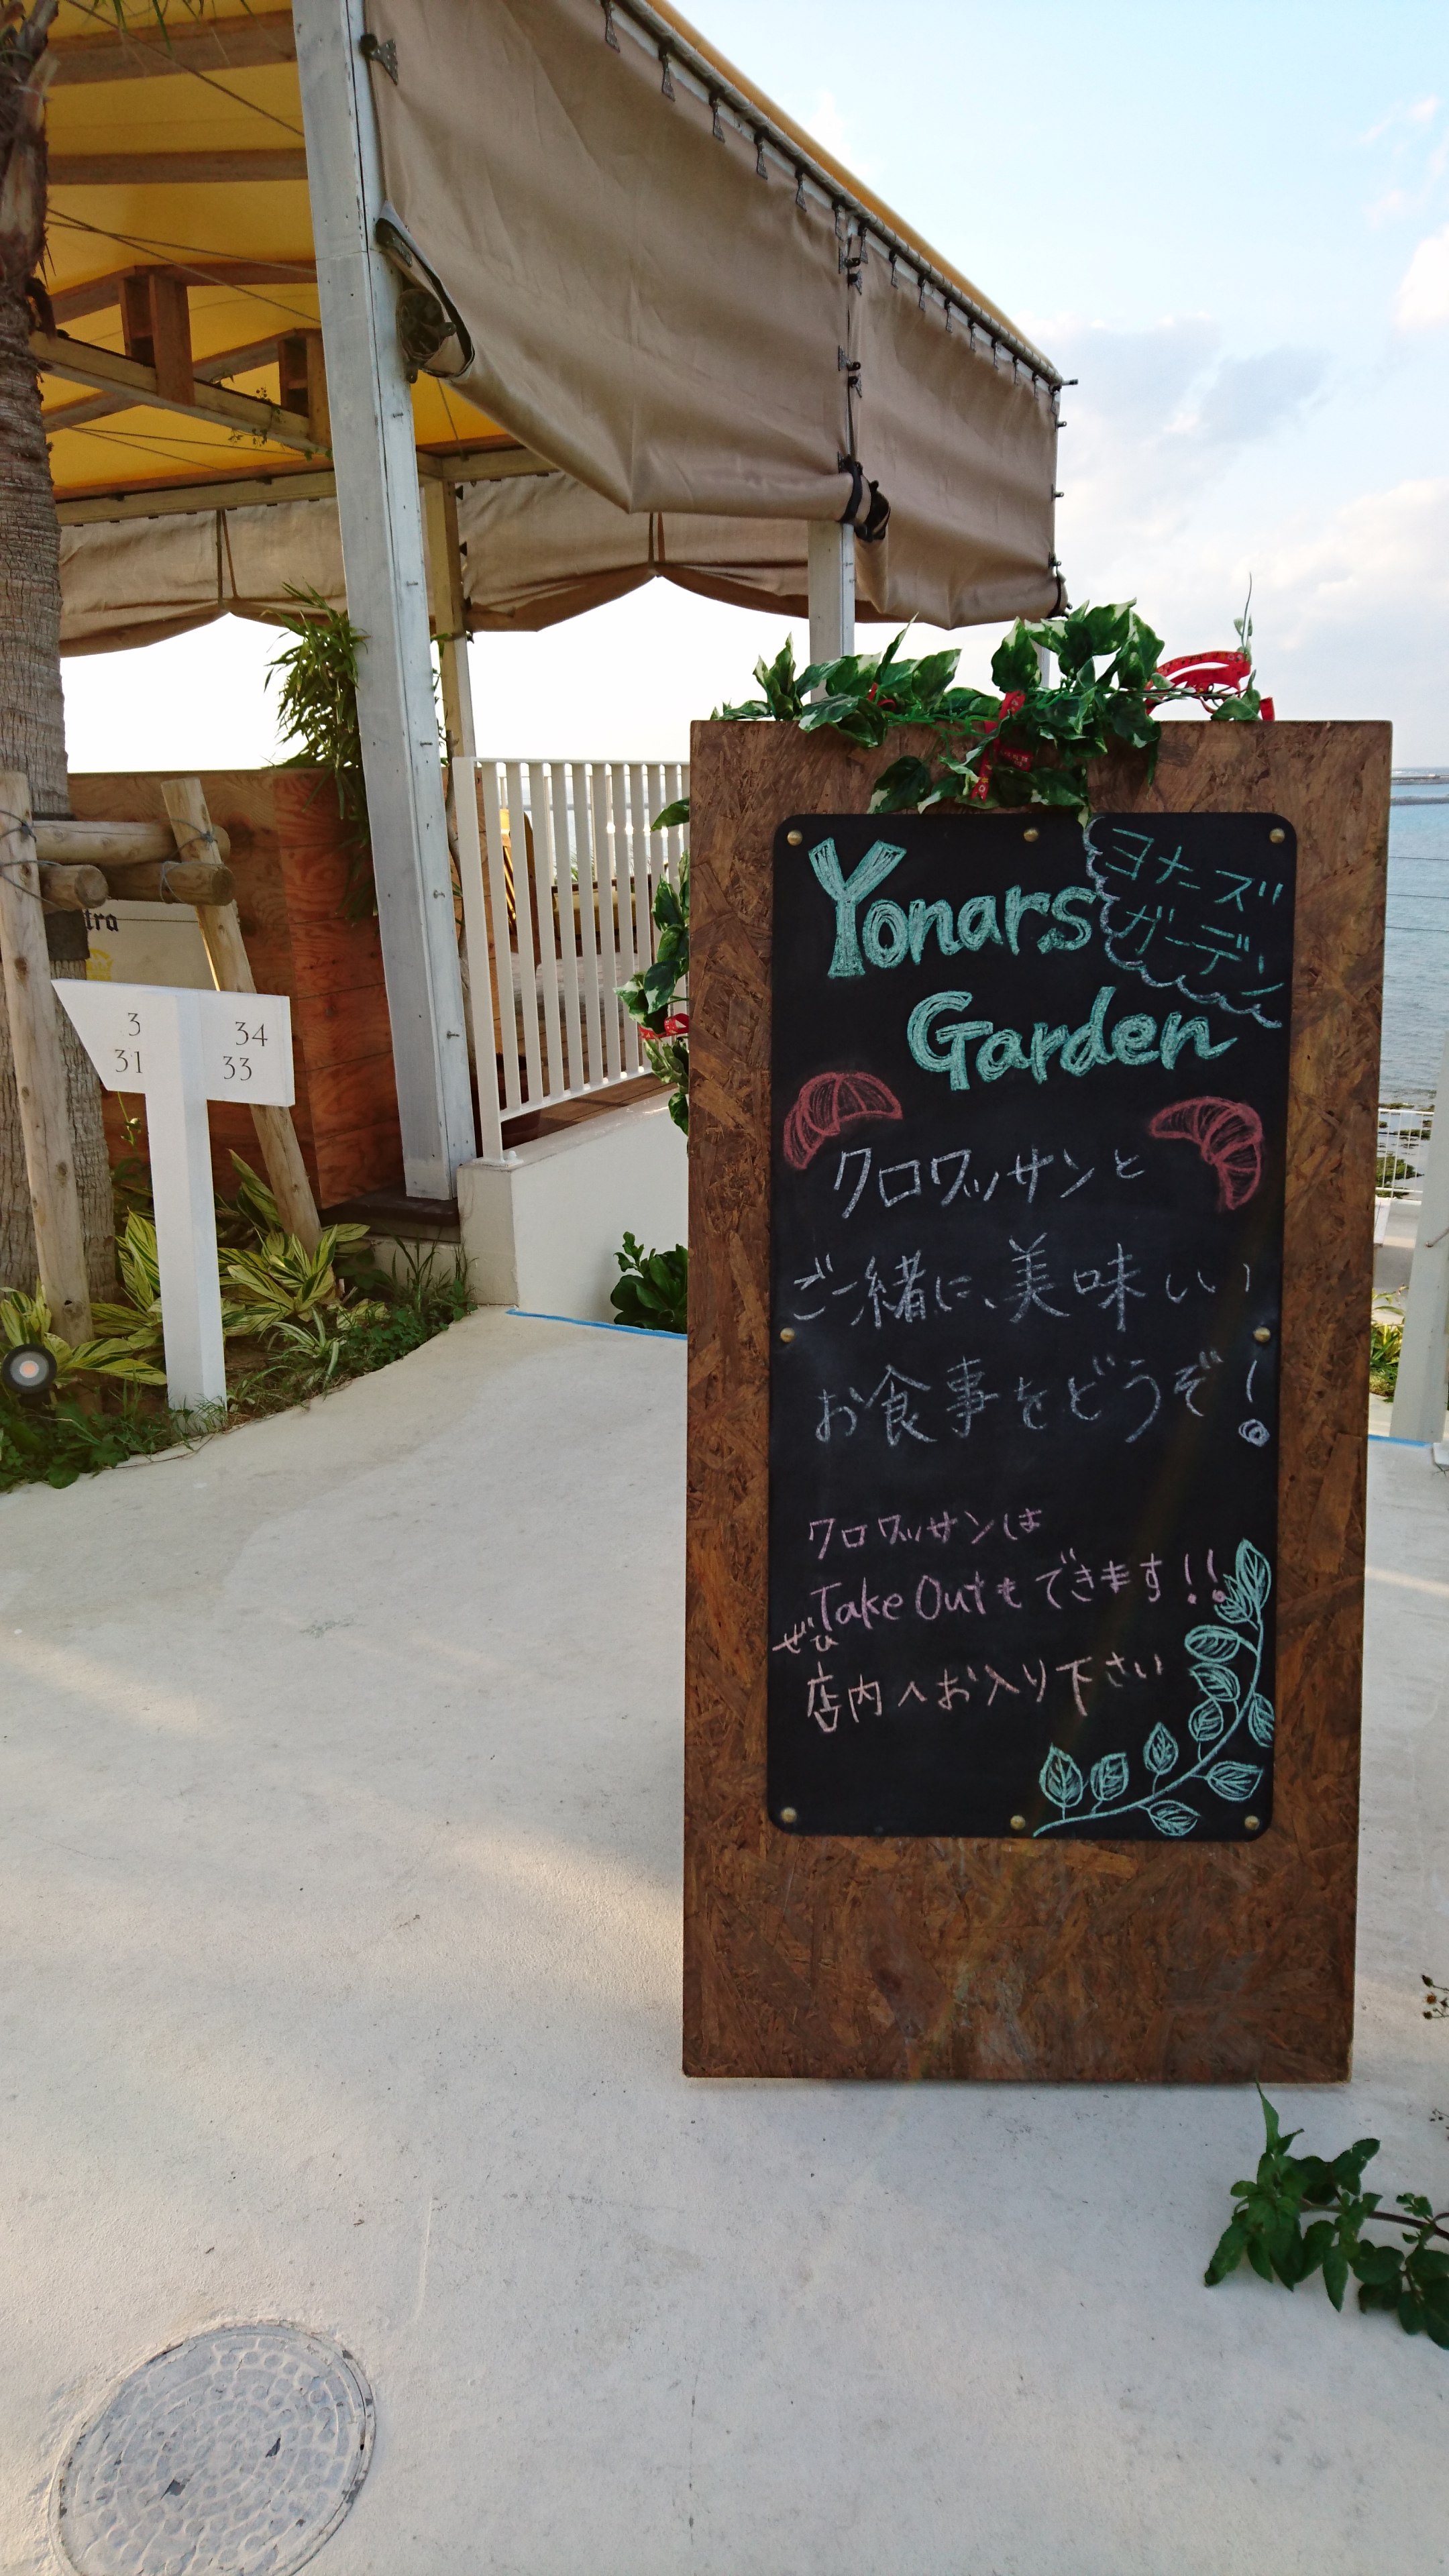 Yonars
ヨナーズ
ガーデン
Garden
クロワッサンと
ご一緒に、美味しい
お食事をどうぞ!
クロワッサンは
Take Outもできます!!
ぜひ
店内へお入り下さい
3 34
31 33
tra